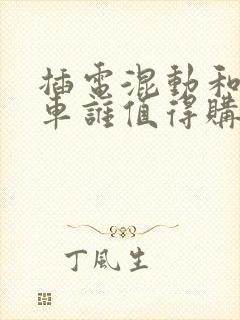 插電混動和
車誰值得購
丁風生